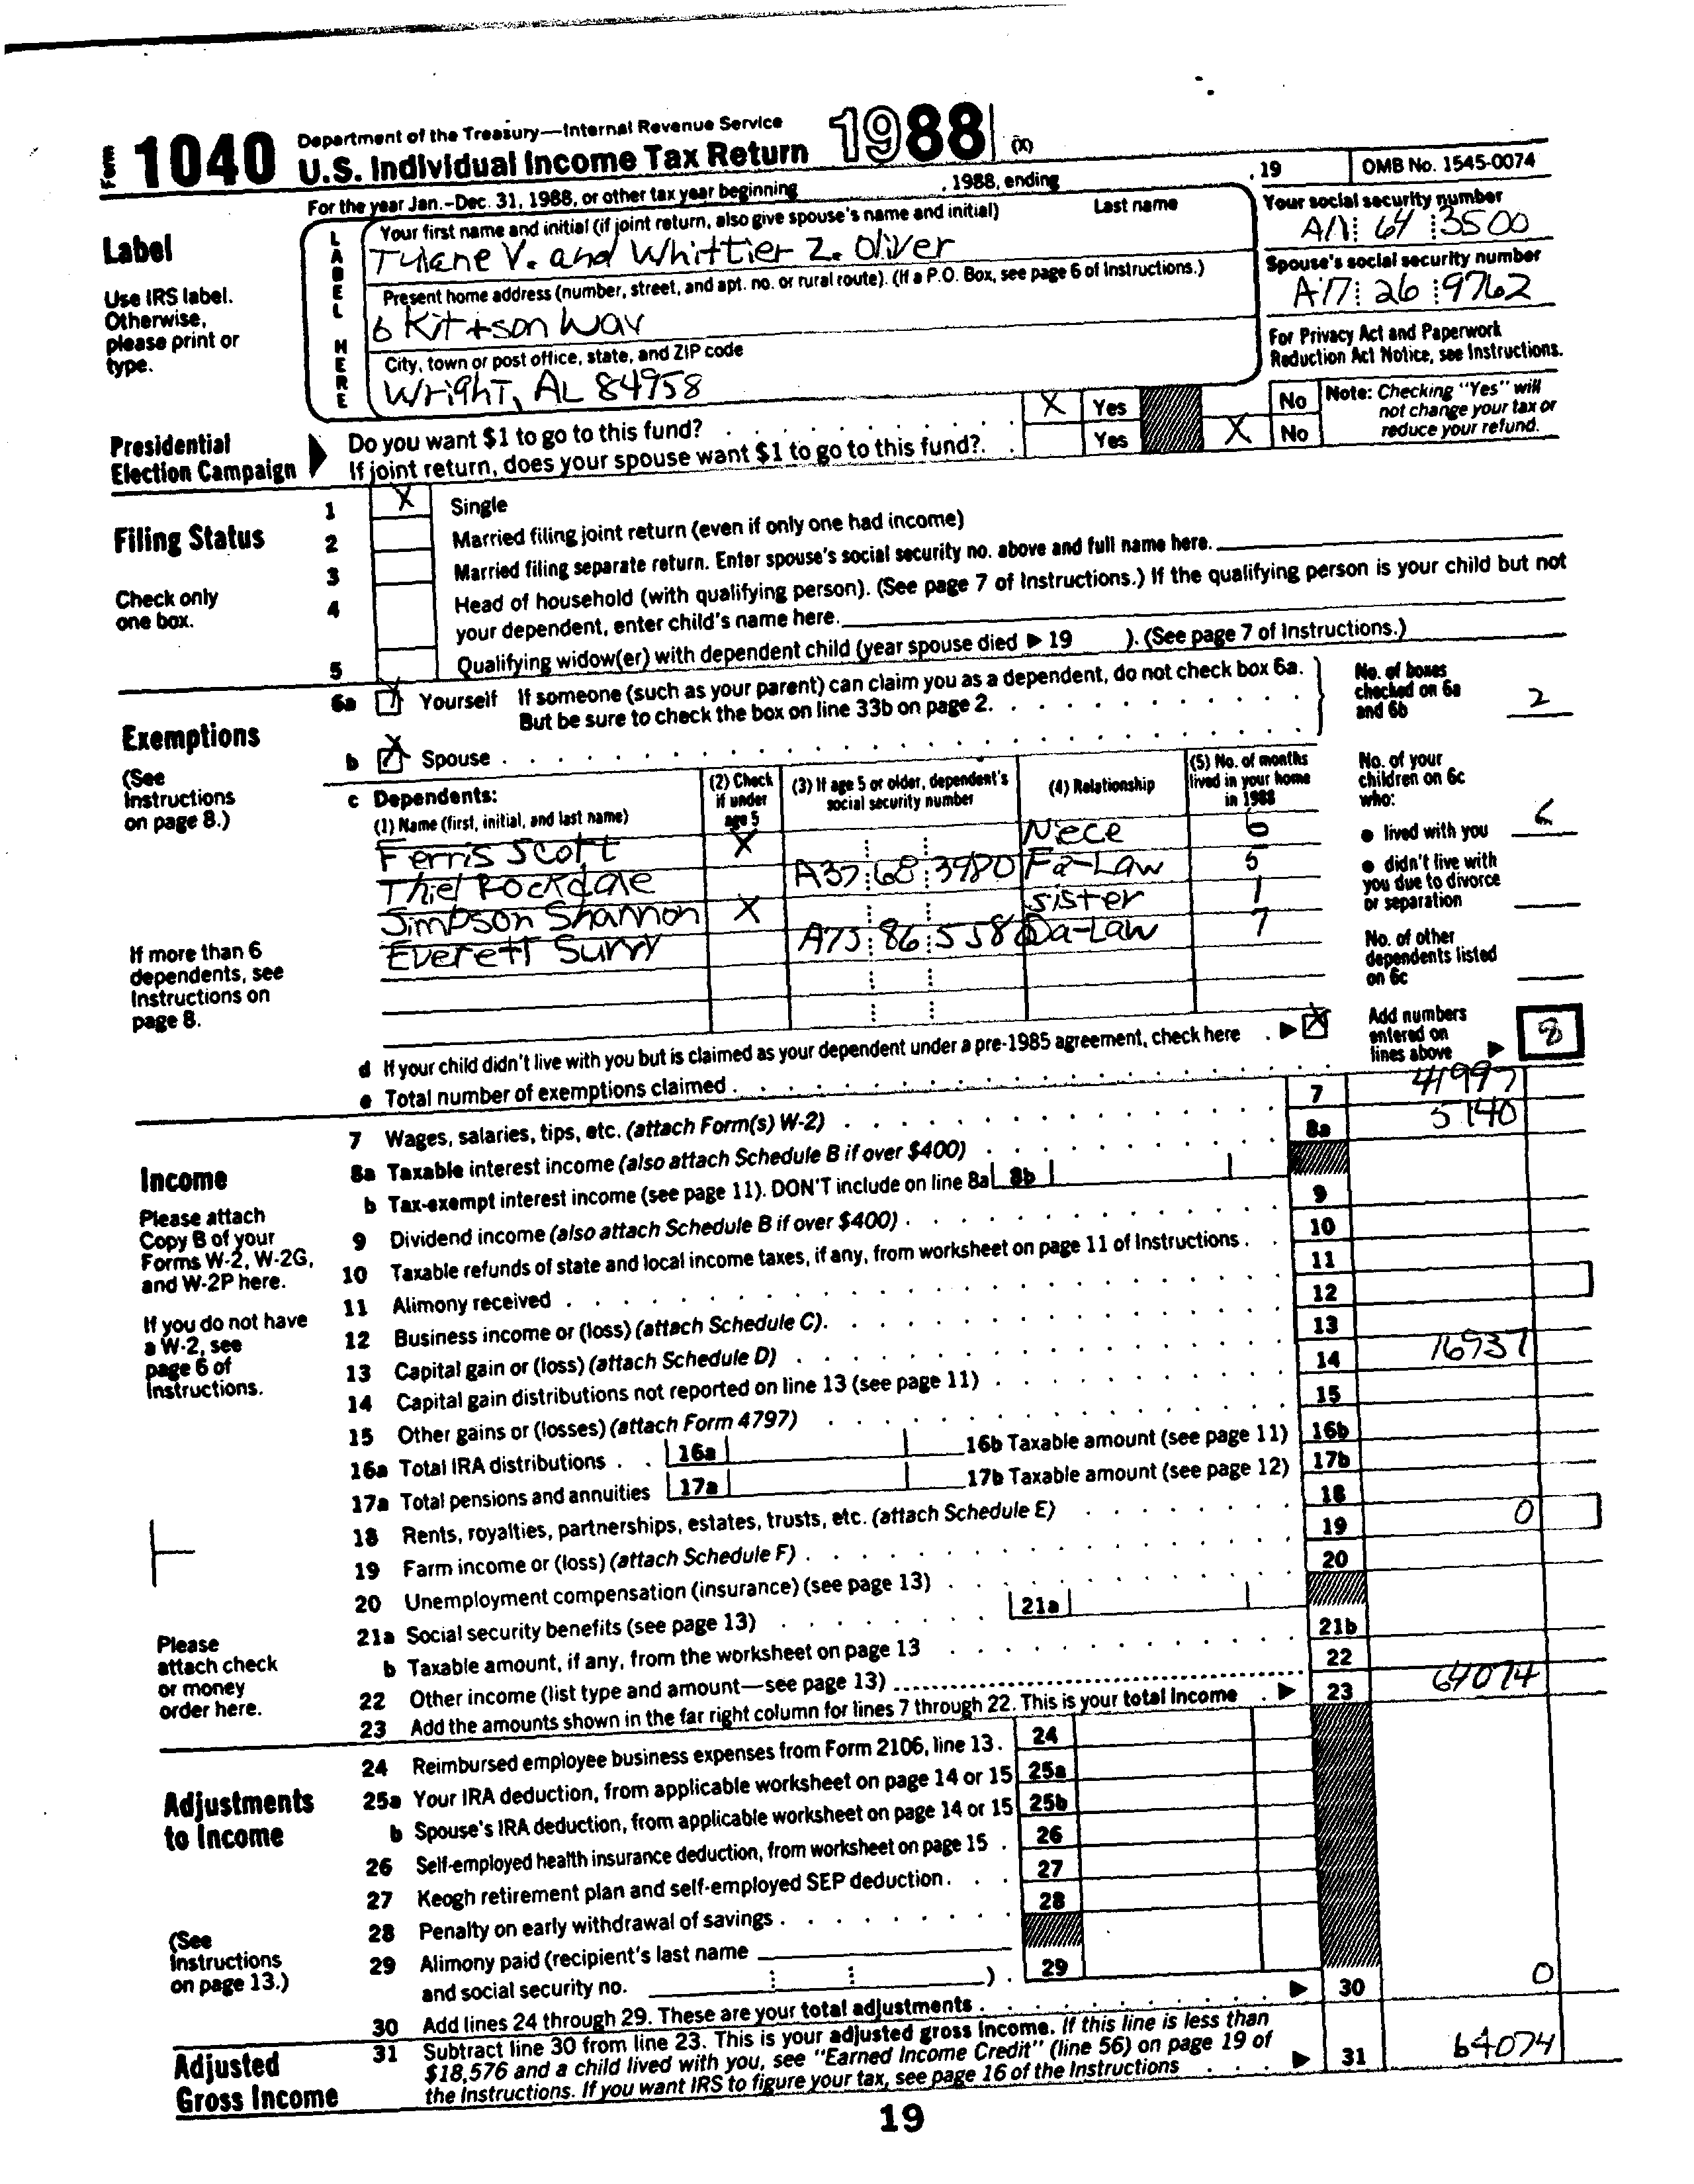 Form 1040 Department of the Treasury—Internal Revenue Service
U.S. Individual Income Tax Return 1988 (X)
For the year Jan.-Dec. 31, 1988, or other tax year beginning , 1988, ending , 19 OMB No. 1545-0074
Label
Use IRS label.
Otherwise,
please print or
type.
LABEL HERE
Your first name and initial (if joint return, also give spouse's name and initial) Last name
V. and Whittier Z. Oliver
Your social security number
64 3500
Present home address (number, street, and apt. no. or rural route). (If a P.O. Box, see page 6 of Instructions.)
6 Kittson Way
Spouse's social security number
A17 26 9762
City, town or post office, state, and ZIP code
Wright, AL 84958
For Privacy Act and Paperwork
Reduction Act Notice, see Instructions.
Presidential
Election Campaign
Do you want $1 to go to this fund? X Yes No
If joint return, does your spouse want $1 to go to this fund? Yes X No
Note: Checking "Yes" will
not change your tax or
reduce your refund.
Filing Status
Check only
one box.
1 X Single
2 Married filing joint return (even if only one had income)
3 Married filing separate return. Enter spouse's social security no. above and full name here.
4 Head of household (with qualifying person). (See page 7 of Instructions.) If the qualifying person is your child but not
your dependent, enter child's name here.
5 Qualifying widow(er) with dependent child (year spouse died ▶ 19 ). (See page 7 of Instructions.)
Exemptions
(See
Instructions
on page 8.)
If more than 6
dependents, see
Instructions on
page 8.
6a X Yourself If someone (such as your parent) can claim you as a dependent, do not check box 6a.
But be sure to check the box on line 33b on page 2.
b X Spouse
No. of boxes
checked on 6a
and 6b 2
c Dependents:
(1) Name (first, initial, and last name)
(2) Check
if under
age 5
(3) If age 5 or older, dependent's
social security number
(4) Relationship
(5) No. of months
lived in your home
in 1988
Ferris Scott X Niece 6
Thiel Rockdale A37 68 3980 Fa-Law 5
Simpson Shannon X Sister 1
Everett Surry A75 86 5586 Da-Law 7
No. of your
children on 6c
who:
• lived with you 6
• didn't live with
you due to divorce
or separation
No. of other
dependents listed
on 6c
d If your child didn't live with you but is claimed as your dependent under a pre-1985 agreement, check here ▶ X
e Total number of exemptions claimed
Add numbers
entered on
lines above ▶ 8
Income
Please attach
Copy B of your
Forms W-2, W-2G,
and W-2P here.
If you do not have
a W-2, see
page 6 of
Instructions.
Please
attach check
or money
order here.
7 Wages, salaries, tips, etc. (attach Form(s) W-2) 7 41997
8a Taxable interest income (also attach Schedule B if over $400) 8a 5140
b Tax-exempt interest income (see page 11). DON'T include on line 8a 8b
9 Dividend income (also attach Schedule B if over $400) 9
10 Taxable refunds of state and local income taxes, if any, from worksheet on page 11 of Instructions 10
11 Alimony received 11
12 Business income or (loss) (attach Schedule C) 12
13 Capital gain or (loss) (attach Schedule D) 13
14 Capital gain distributions not reported on line 13 (see page 11) 14 16937
15 Other gains or (losses) (attach Form 4797) 15
16a Total IRA distributions 16a 16b Taxable amount (see page 11) 16b
17a Total pensions and annuities 17a 17b Taxable amount (see page 12) 17b
18 Rents, royalties, partnerships, estates, trusts, etc. (attach Schedule E) 18
19 Farm income or (loss) (attach Schedule F) 19 0
20 Unemployment compensation (insurance) (see page 13) 20
21a Social security benefits (see page 13) 21a
b Taxable amount, if any, from the worksheet on page 13 21b
22 Other income (list type and amount—see page 13) 22
23 Add the amounts shown in the far right column for lines 7 through 22. This is your total income ▶ 23 64074
Adjustments
to Income
(See
Instructions
on page 13.)
24 Reimbursed employee business expenses from Form 2106, line 13. 24
25a Your IRA deduction, from applicable worksheet on page 14 or 15 25a
b Spouse's IRA deduction, from applicable worksheet on page 14 or 15 25b
26 Self-employed health insurance deduction, from worksheet on page 15 26
27 Keogh retirement plan and self-employed SEP deduction 27
28 Penalty on early withdrawal of savings 28
29 Alimony paid (recipient's last name
and social security no. ) 29
30 Add lines 24 through 29. These are your total adjustments ▶ 30 0
Adjusted
Gross Income
31 Subtract line 30 from line 23. This is your adjusted gross income. If this line is less than
$18,576 and a child lived with you, see "Earned Income Credit" (line 56) on page 19 of
the Instructions. If you want IRS to figure your tax, see page 16 of the Instructions ▶ 31 64074
19